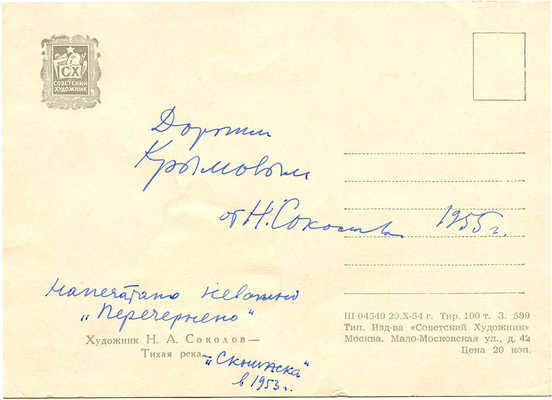 СХ
СОВЕТСКИЙ
ХУДОЖНИК
Дорогим
Крымовым
от Н. Соколова 1955 г.
Напечатано неважно
„Перечернено"
Художник Н. А. Соколов—
Тихая река — „Скнижка"
в 1953 г.
Ш 04549 29.X-54 г. Тир. 100 т. З. 589
Тип. Изд-ва «Советский Художник»
Москва. Мало-Московская ул., д. 42
Цена 20 коп.